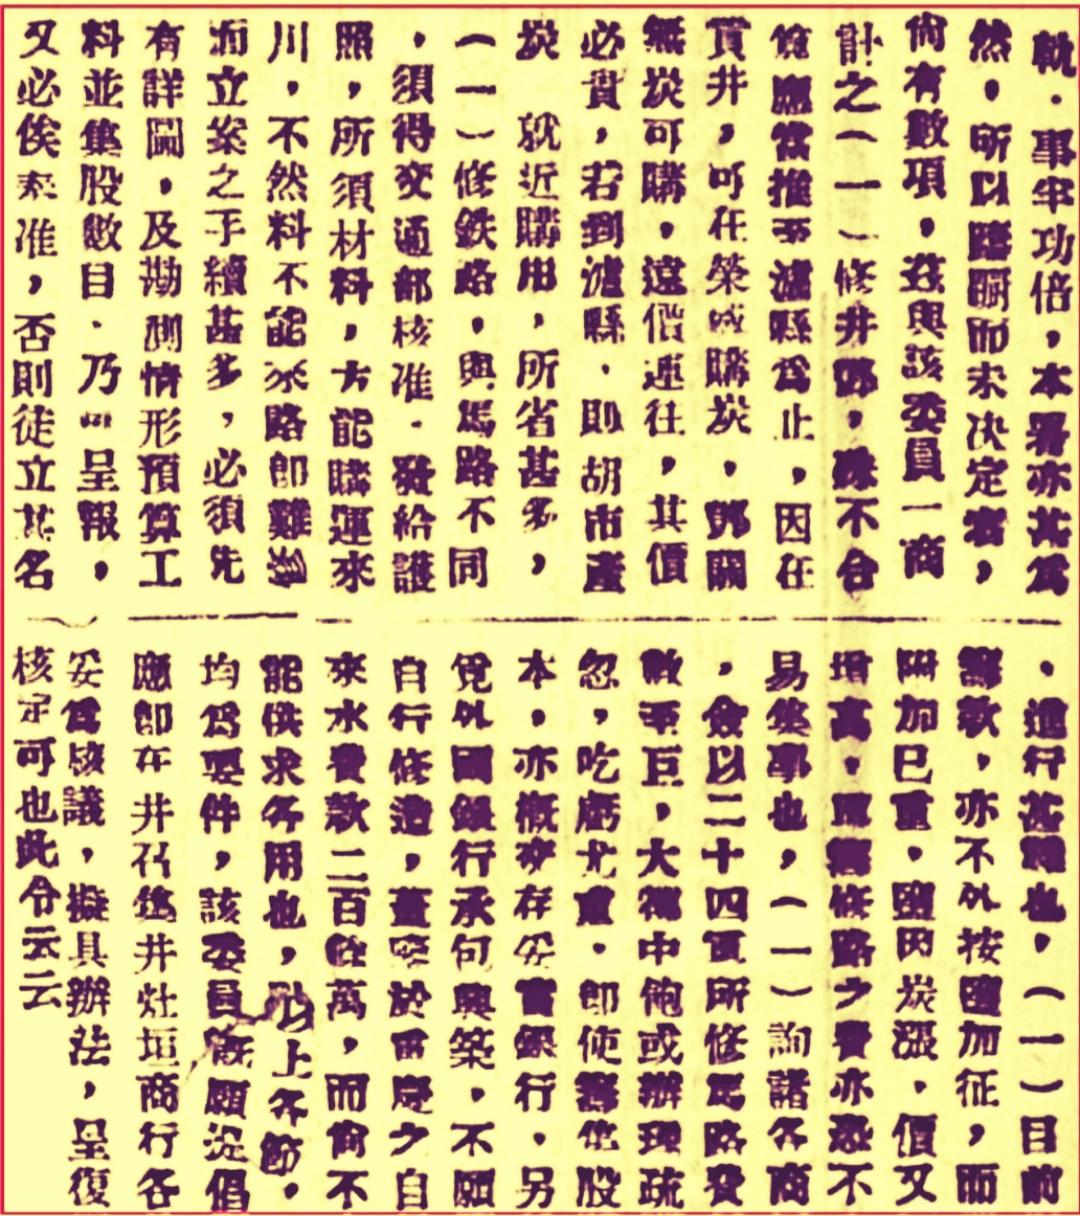 軌．事半功倍，本署亦甚爲
然，所以躊躇而未決定者，
尙有數項，茲與該委員一商
計之（一）修井邛，殊不合
算應當推至瀘縣爲止，因在
貢井，可在榮威購炭，鄧關
無炭可購，遠借運往，其價
必貴，若到瀘縣．即胡市產
炭 就近購用，所省甚多，
（一）修鉄路，與馬路不同
，須得交通部核准．發給護
照，所須材料，方能購運來
川，不然料不能來路即難
而立案之手續甚多，必須先
有詳圖，及勘測情形預算工
料並集股數目．乃 呈報，
又必俟 准，否則徒立其名
．進行甚 也，（一）目前
籌款，亦不外按鹽加征，而
附加已重，鹽因炭漲，價又
增高， 修路之費亦恐不
易集事也，（一）詢諸各商
，僉以二十四軍所修馬路費
款至巨，大 中飽或辦理疏
忽，吃虧尤重．即使籌 股
本，亦概交存 實銀行．另
覓外國銀行承 興築，不願
自行修造， 於 之自
來水費款二百餘萬，而尙不
能供求各用也，以上各節．
均爲要件，該委員 願 倡
應即在井召集井灶垣商行各
妥爲 議，擬具辦法，呈復
核定可也此令云云